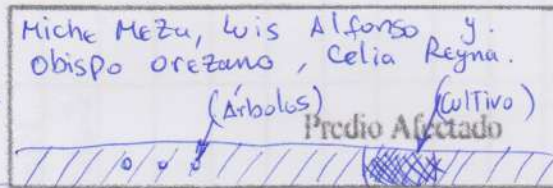 Miche Meza, Luis Alfonso y.
Obispo Orezano, Celia Reyna.
(Árboles) (Cultivo)
Predio Afectado